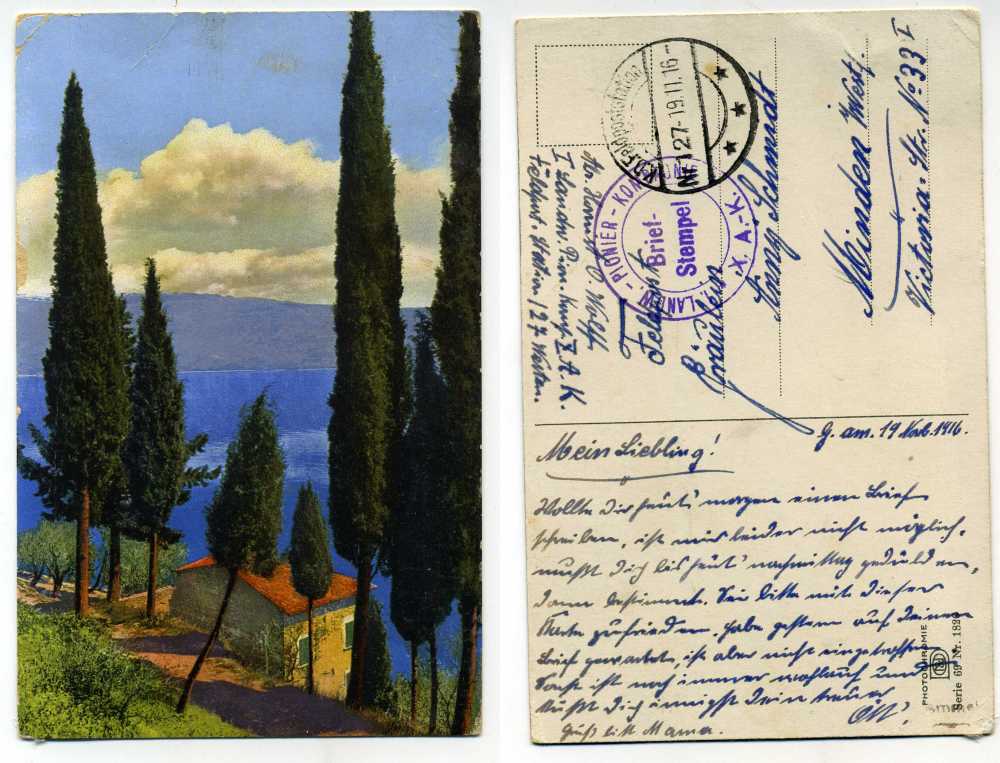 Feldpost
Fräulein
Änny Schmidt
Minden Westf.
Victoria-Str. No 33 I
I Landw. Pion. Komp. X. A. K.
Feldpost-Station 127 Westen.
K.D. Feldpoststation
Nr. 127 - 19.11.16 -
LANDW. - PIONIER - KOMPAGNIE
Brief-
Stempel
X. A.-K.
G. am 19 Novb. 1916.
Mein Liebling!
Wollte Dir heut' morgen einen Brief
schreiben, ist mir leider nicht möglich,
mußt Dich bis heut' nachmittag gedulden,
dann bestimmt. Sei bitte mit dieser
Karte zufrieden. Habe gestern auf Deinen
Brief gewartet, ist aber nicht eingetroffen.
Sonst ist noch immer wohlauf und
küßt Dich innigst Dein treuer
Gruß bitte Mama.
PHOTOCHROMIE
Serie 69 Nr. 182